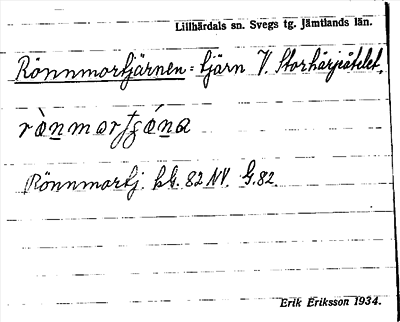 Lillhärdals sn. Svegs tg. Jämtlands län.
Rönnmortjärnen = tjärn V. Storhärjeåtelet.
Rönnmortj. bG. 82 NV. G. 82.
Erik Eriksson 1934.